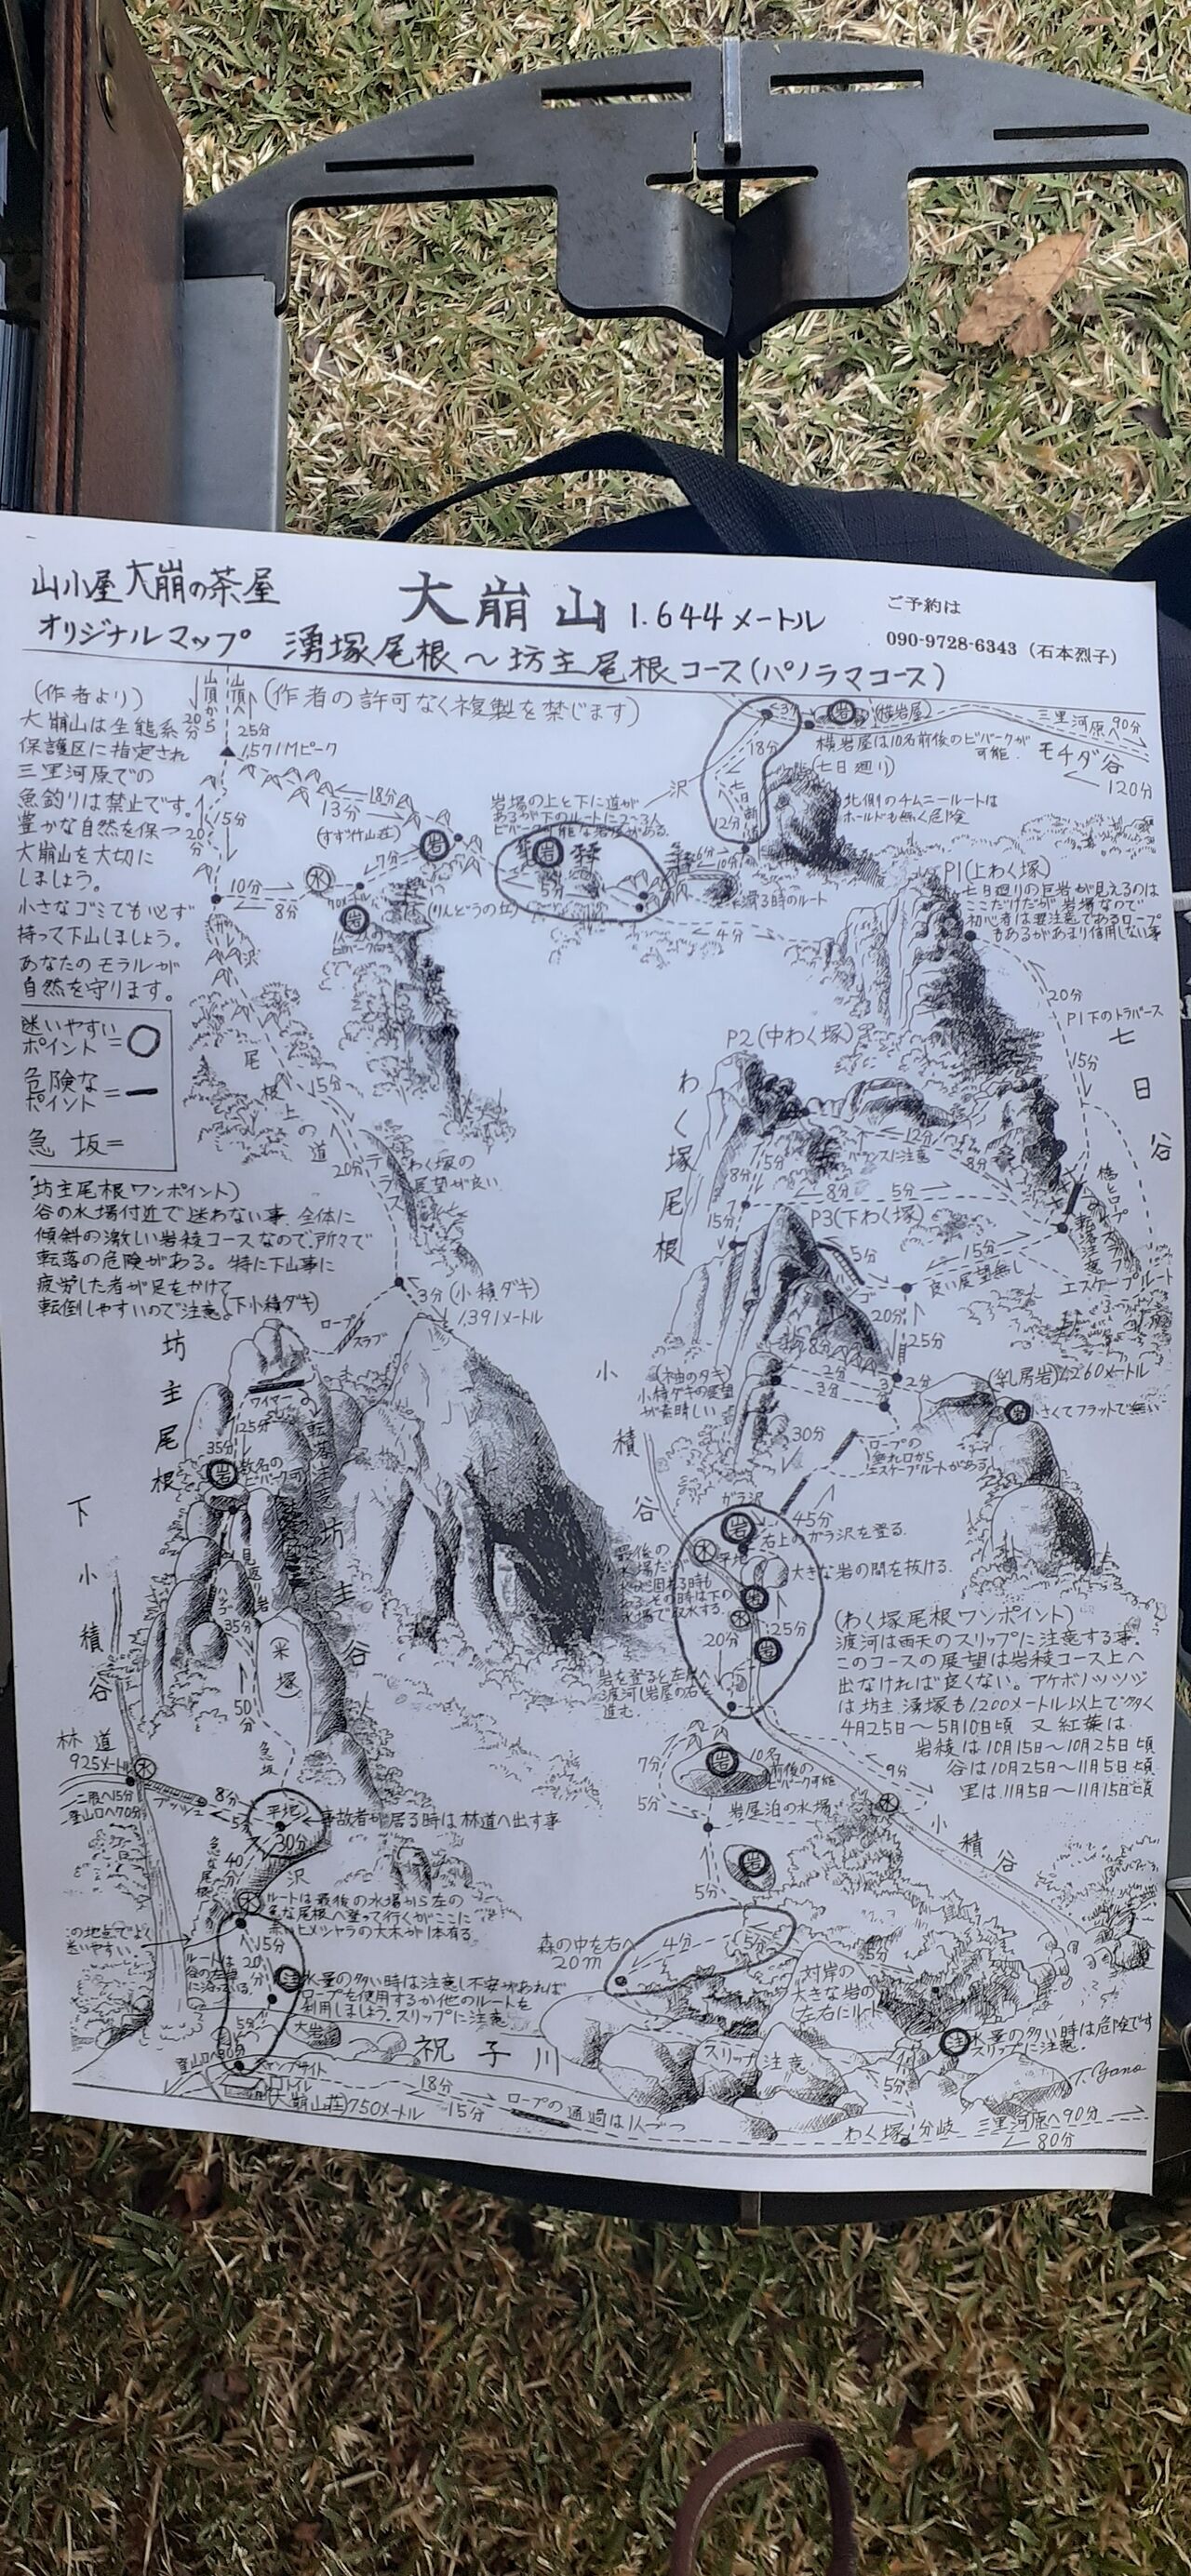 山小屋 大崩の茶屋
オリジナルマップ
大崩山 1.644メートル
湧塚尾根～坊主尾根コース(パノラマコース)
ご予約は
090-9728-6343（石本烈子）
(作者の許可なく複製を禁じます)
(作者より)
大崩山は生態系
保護区に指定され
三里河原での
魚釣りは禁止です。
豊かな自然を保つ
大崩山を大切に
しましょう。
小さなゴミでも必ず
持って下山しましょう。
あなたのモラルが
自然を守ります。
迷いやすい
ポイント=
危険な
ポイント=
急坂=
山頂から
20分
山頂へ
25分
1.571Mピーク
15分
20分
13分
18分
(すず竹山荘)
7分
岩
水
10分
8分
岩
(りんどうの丘)
岩場の上と下に道が
あるが下のルートに2~3人
ビバーク可能な岩屋がある。
岩
5分
沢
3分
18分
12分
岩
(横岩屋)
三里河原へ90分
横岩屋は10名前後のビバークが
可能.
モチダ谷
120分
(七日廻り)
北側のチムニールートは
ホールドも無く危険
10分
4分
P1(上わく塚)
七日廻りの巨岩が見えるのは
ここだけだが岩場なので
初心者は要注意であるロープ
もあるがあまり信用しない事
20分
P1下のトラバース
15分
七日谷
P2(中わく塚)
わく塚尾根
12分
バランスに注意
8分
8分
5分
15分
P3(下わく塚)
5分
15分
良い展望無し
橋とロープ
転落注意
エスケープルート
20分
25分
尾根上の道
15分
20分
テラス
わく塚の
展望が良い
坊主尾根ワンポイント)
谷の水場付近で迷わない事.全体に
傾斜の激しい岩稜コースなので.所々で
転落の危険がある。特に下山事に
疲労した者が足をかけて
転倒しやすいので注意。
(下小積ダキ)
3分(小積ダキ)
1.391メートル
ロープ
スラブ
坊主尾根
ワイヤー
25分
35分
岩
転落注意
坊主谷
見返り岩
ハシゴ
35分
(米塚)
50分
急坂
下小積谷
小積谷
(袖のダキ)
小積ダキの展望
が素晴しい
2分
3分
2分
(乳房岩)1.260メートル
岩
小さくてフラットで無い
30分
ロープの
エスケープルートがある
ガラ沢
45分
岩
右上のガラ沢を登る.
水
平地
大きな岩の間を抜ける.
岩
水
20分
25分
岩
(わく塚尾根ワンポイント)
渡河は雨天のスリップに注意する事.
このコースの展望は岩稜コース上へ
出なければ良くない。アケボノツツジ
は坊主.湧塚も1.200メートル以上で多く
4月25日～5月10日頃 又紅葉は
岩稜は10月15日～10月25日頃
谷は10月25日～11月5日頃
里は11月5日～11月15日頃
7分
岩
10名
前後の
ビバーク可能
5分
岩屋泊の水場
9分
水
小積谷
岩
5分
林道
925メートル
水
二股へ15分
登山口へ70分
8分
5分
平地
事故者が居る時は林道へ出す事
30分
急な尾根
40分
沢
水
ルートは最後の水場から左の
急な尾根へ登って行くがここに
赤いヒメシャラの大木が1本有る.
この地点でよく
迷いやすい.
15分
20分
注
水量の多い時は注意し不安があれば
ロープを使用するか他のルートを
利用しましょう.スリップに注意
5分
大岩
森の中を右へ
20m
4分
5分
5分
対岸の
大きな岩の
左右にルート
注
水量の多い時は危険です
スリップに注意.
祝子川
スリップ注意
5分
T.Yano
キャンプサイト
トイレ
(大崩山荘)750メートル
18分
15分
ロープの通過は1人づつ
わく塚分岐
三里河原へ90分
80分